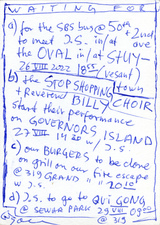 WAITING FOR
a) for the SBS bus @ 50th
to meet J.S. in/at + 2nd ave
the OVAL in/at STUY-
26 VIII 2022 1855 (vesant)
b) the STOP SHOPPING town
+ Reverend BILLY CHOIR
start their performance
on GOVERNORS ISLAND
27 VIII 1420 w/ J.S.
c) our BURGERS to be done
on grill on our fire escape
@ 319 GRAND " " 2010
w J.S.
d) J.S. to go to QUI GONG
@ SEWARD PARK 29 VIII 0900
@ 319